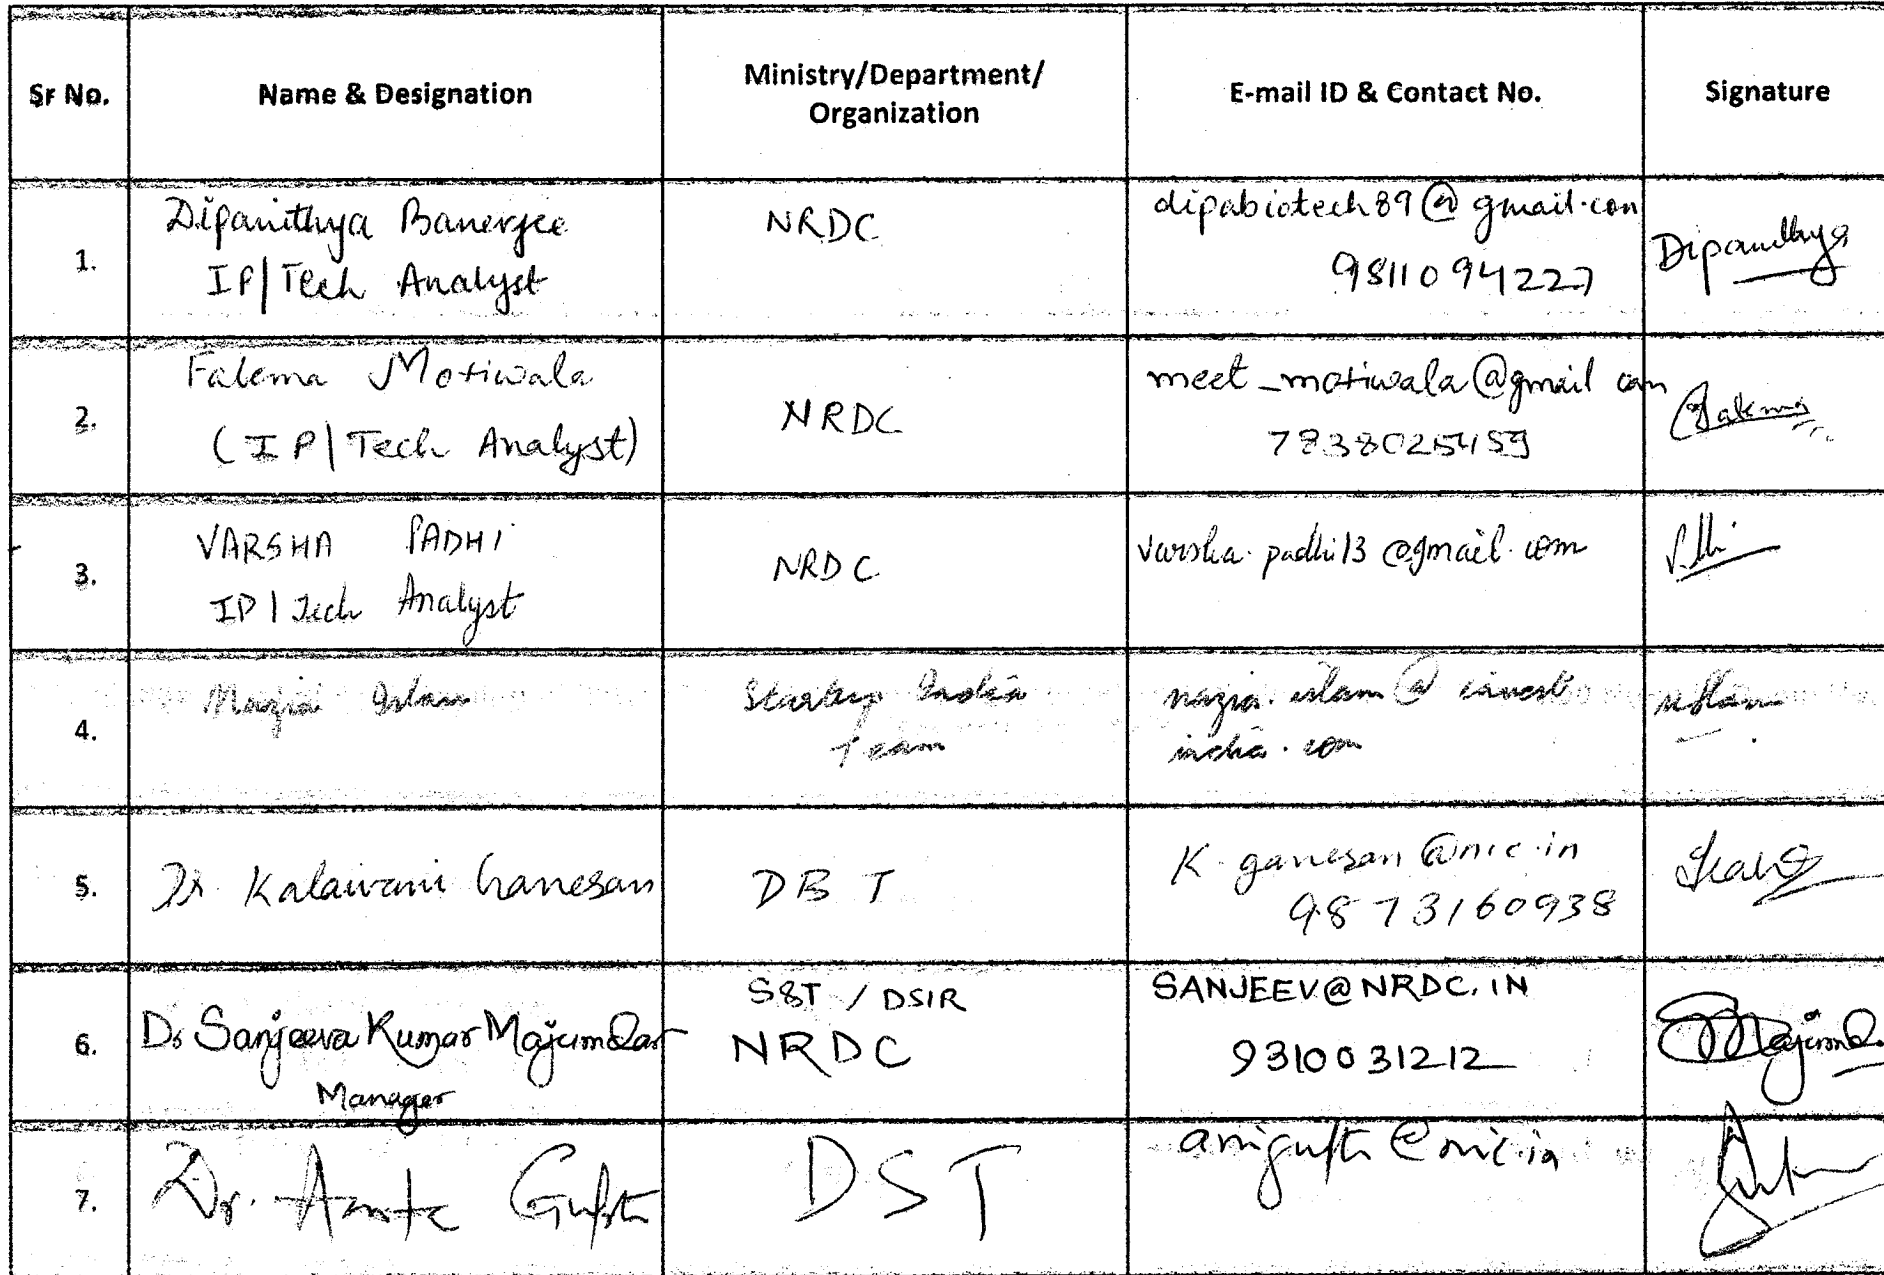 Sr No.
Name & Designation
Ministry/Department/
Organization
E-mail ID & Contact No.
Signature
1.
Dipanithya Banerjee
IP/Tech Analyst
NRDC
dipabiotech89@gmail.com
9811094227
Dipanithya
2.
Fatema Motiwala
(IP/Tech Analyst)
NRDC
meet_motiwala@gmail com
7838025459
Fatema
3.
VARSHA PADHI
IP/Tech Analyst
NRDC
varsha.padhi13@gmail.com
4.
Nazia Islam
Startup India
Team
nazia.islam@invest
india.com
5.
Dr. Kalaivani Ganesan
DBT
K.ganesan@nic.in
9873160938
6.
Dr Sanjeeva Kumar Majumdar
Manager
S&T / DSIR
NRDC
SANJEEV@NRDC.IN
9310031212
Majumd
7.
Dr. Anita Gupta
DST
anigupta@nic.in